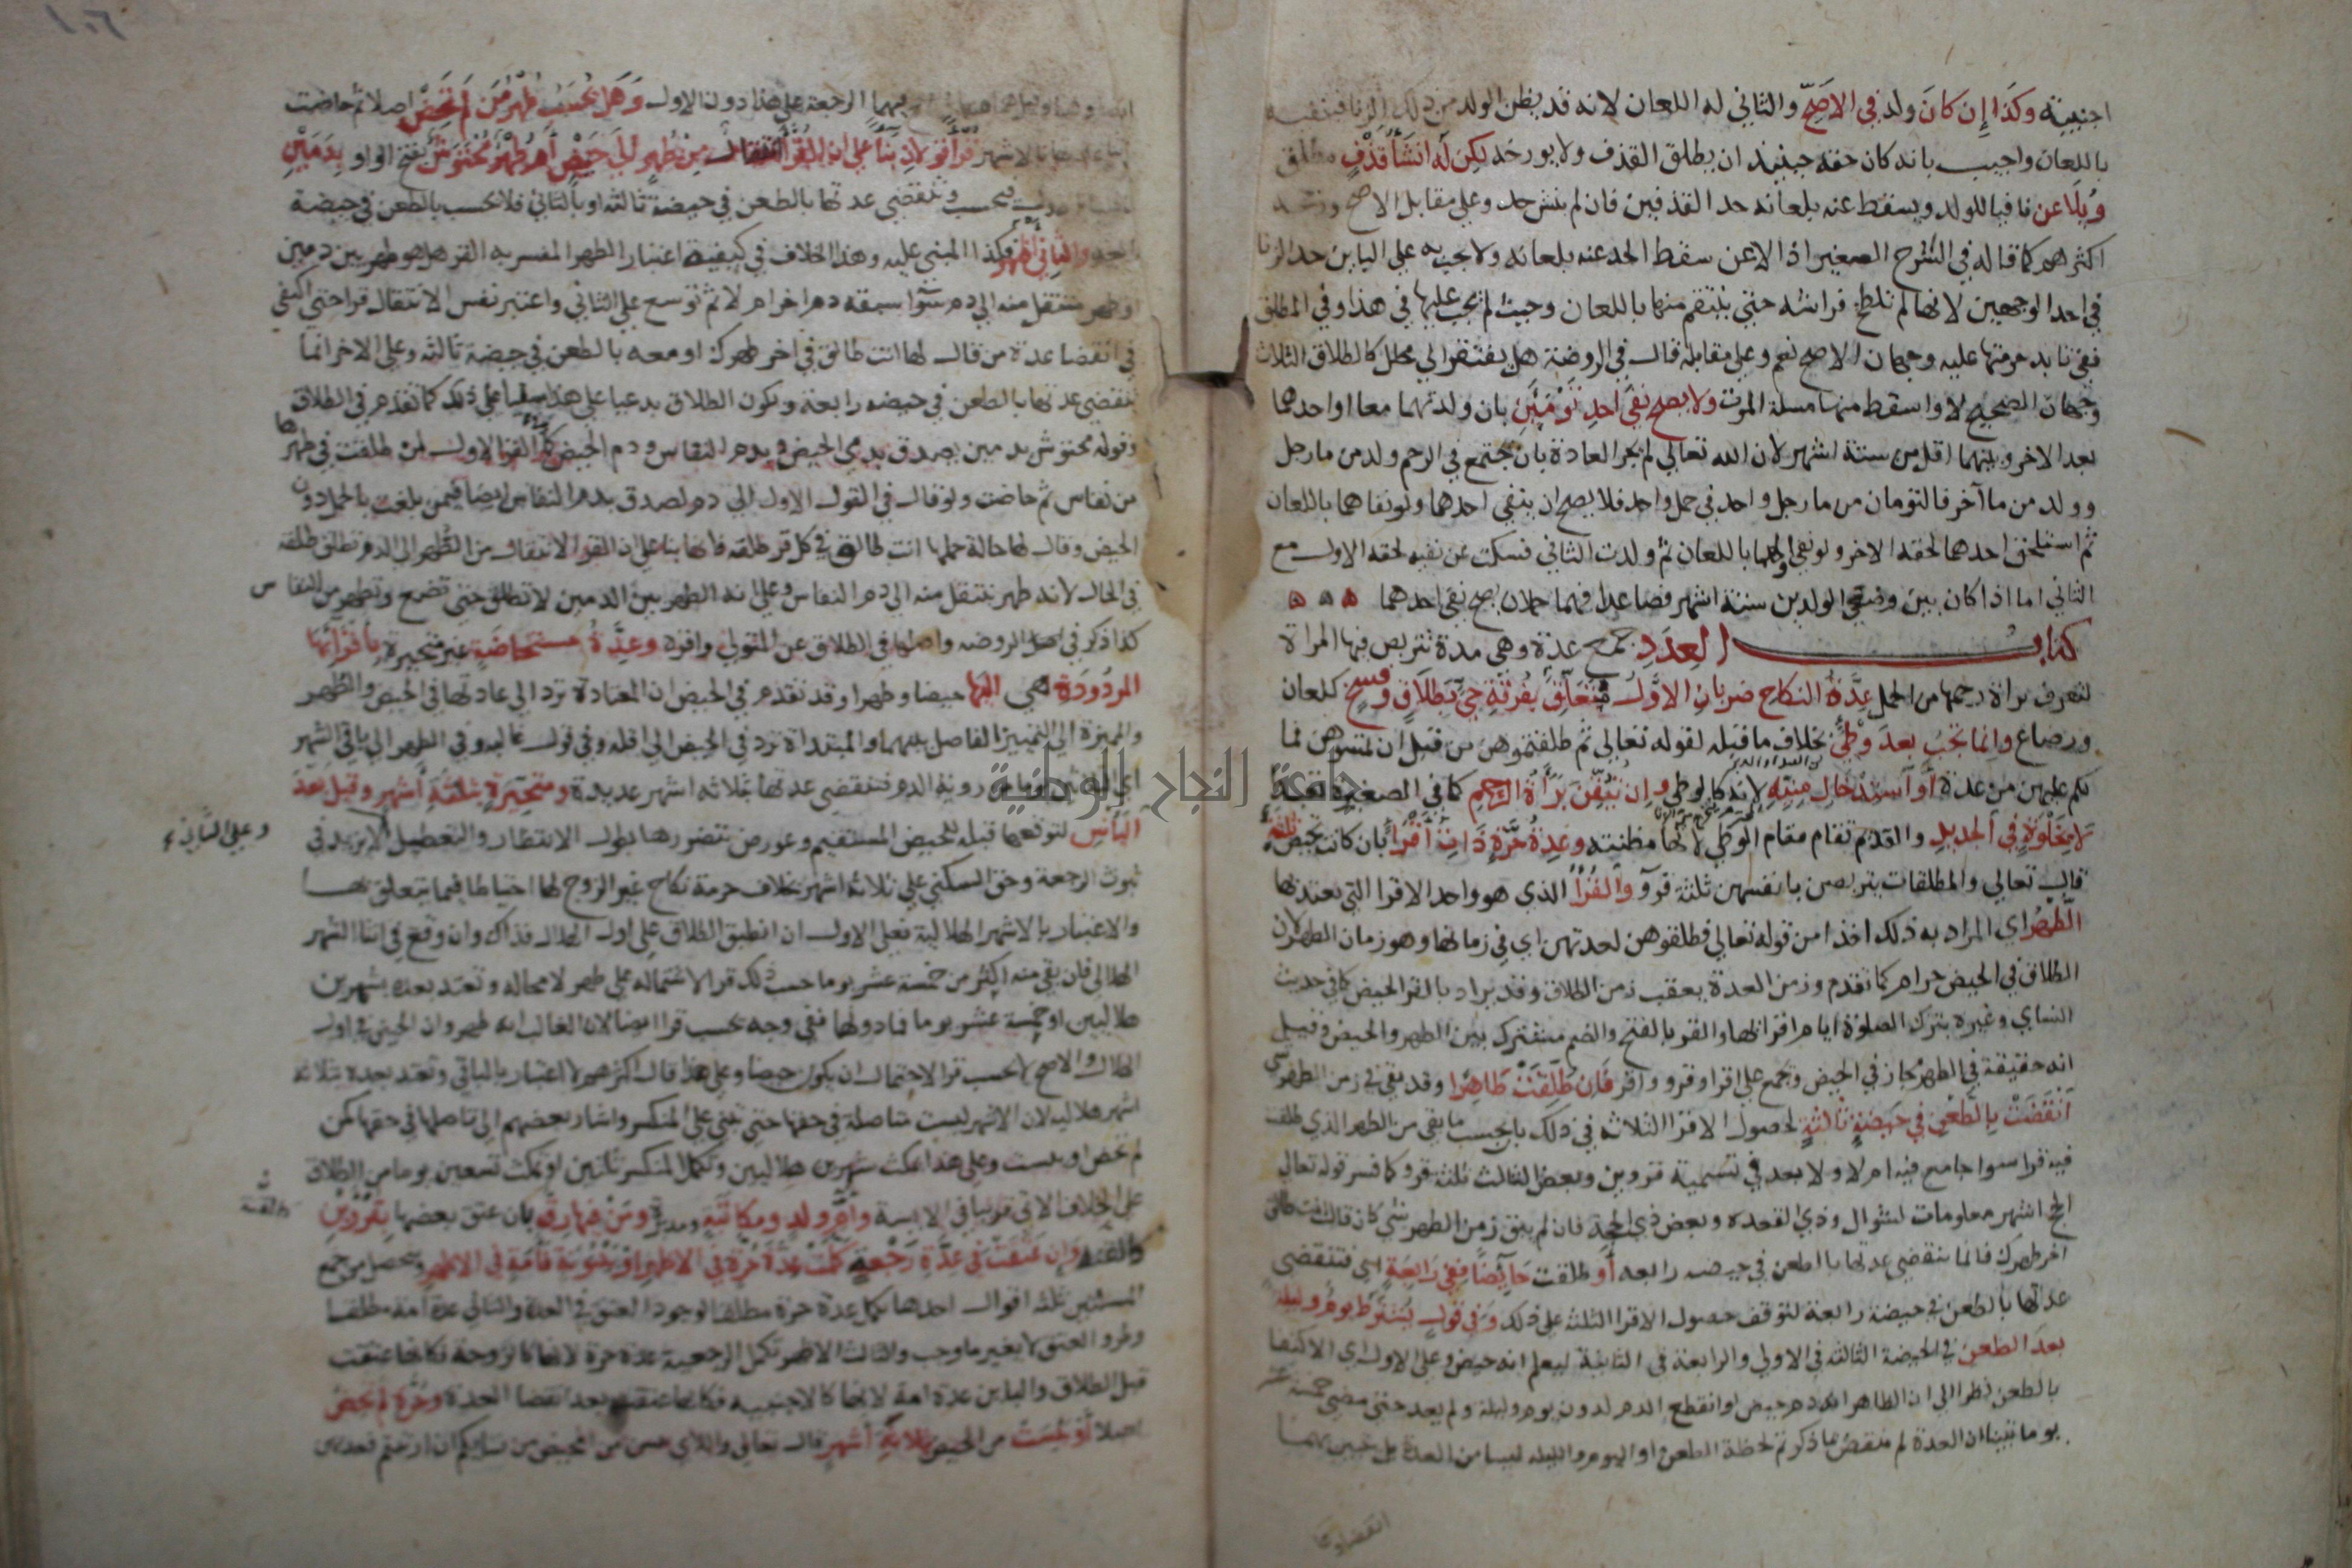 اجنبية وكذا إن كان ولد في الاصح والثاني له اللعان لانه قد يظن الولد من ذلك الزنا فينفيه
باللعان واجيب بانه كان حقه حينيذ ان يطلق القذف ولا يورخه لكن له انشأ قذف مطلق
ويلاعن نافيا للولد ويسقط عنه بلعانه حد القذفين فان لم ينش حد وعلي مقابل الاصح
اكثرهم كما قاله في الشرح الصغير اذا لاعن سقط الحد عنه بلعانه ولا يجب به علي الباين حد الزنا
في احد الوجهين لانها لم تلطخ فراشه حتي ينتقم منها باللعان وحيث لم يجب عليها في هذا وفي المطلق
ففي تابد حرمتها عليه وجهان الاصح نعم وعلي مقابله قال في الروضة هل يفتقر الي محلل كالطلاق الثلاث
وجهان الصحيح لا واسقط منها مسلة الموت ولا يصح نفي احد توءمين بان ولدتهما معا او احدهما
بعد الاخر وبينهما اقل من ستة اشهر لان الله تعالي لم يجر العادة بان يجتمع في الرحم ولد من ما رجل
وولد من ما آخر فالتؤمان من ما رجل واحد في حمل واحد فلا يصح ان ينفي احدهما ولو نفاهما باللعان
ثم استلحق احدهما لحقه الاخر ولو نفي اولهما باللعان ثم ولدت الثاني فسكت عن نفيه لحقه الاول مع
الثاني اما اذا كان بين وضعي الولدين ستة اشهر فصاعدا فهما حملان يصح نفي احدهما ه ه ه
كتاب العدد جمع عدة وهي مدة تتربص فيها المراة
لتعرف براة رحمها من الحمل عدة النكاح ضربان الاول متعلق بفرقة حي بطلاق وفسخ كلعان
ورضاع وانما تجب بعد وطئ بخلاف ما قبله لقوله تعالي ثم طلقتموهن من قبل ان تمسوهن فما
لكم عليهن من عدة أو استدخال منيه لانه كالوطي وان تيقن برأة الرحم كما في الصغيرة
لا بخلوة في الجديد والقديم تقام مقام الوطي لانها مظنته وعدة حرة ذات أقرأ بان كانت تحيض ثلثة
قال تعالي والمطلقات يتربصن بانفسهن ثلثة قروء والقرأ الذي هو واحد الاقرا التي يعتد بها
الطهر اي المراد به ذلك اخذا من قوله تعالي فطلقوهن لعدتهن اي في زمانها وهو زمان الطهر لان
الطلاق في الحيض حرام كما تقدم وزمن العدة يعقب زمن الطلاق وقد يراد بالقرا الحيض كما في حديث
النساي وغيره بترك الصلوة ايام اقرائها والقرو بالفتح والضم مشترك بين الطهر والحيض وقيل
انه حقيقة في الطهر مجاز في الحيض ويجمع علي اقرا وقرو واقر فان طلقت طاهرا وقد بقي في زمن الطهر شي
انقضت بالطعن في حيضة ثالثة لحصول الاقرا الثلاثة في ذلك بان يحسب ما بقي من الطهر الذي طلقت
فيه قرا سوا جامع فيه ام لا ولا بعد في تسمية قروين وبعض الثالث ثلثة قرو كما فسر قوله تعالي
الحج اشهر معلومات بشوال وذي القعدة وبعض ذي الحجة فان لم يبق زمن الطهر شي كان قال انت طالق
اخر طهرك فانما تنقضي عدتها بالطعن في حيضه رابعه أو طلقت حايضا ففي رابعة اي فتنقضي
عدتها بالطعن في حيضة رابعة لتوقف حصول الاقرا الثلثة علي ذلك وفي قول يشترط يوم وليلة
بعد الطعن في الحيضة الثالثه في الاولي والرابعة في الثانية ليعلم انه حيض وعلي الاول اي الاكتفا
بالطعن نظرا الي ان الظاهر انه دم حيض لو انقطع الدم لدون يوم وليلة ولم يعد حتي مضي خمسة عشر
يوما تبينا ان العدة لم تنقض بما ذكر ثم لحظة الطعن او اليوم والليله ليسا من العدة بل يتبين بهما
انقضاوها
١٠٦
الرجعة علي هذا دون الاول وهل يحسب طهر من لم تحض اصلا ثم حاضت
قرأ قولان بناء علي ان القرأ انتقال من طهر الي حيض أم طهر محتوش بفتح الواو بدمين
وتنقضي عدتها بالطعن في حيضة ثالثه او بالثاني فلا يحسب بالطعن في حيضة
والثاني اظهر فكذا المبني عليه وهذا الخلاف في كيفية اعتبار الطهر المفسر به القرء هل هو طهر بين دمين
او طهر ينتقل منه الي دم سوا سبقه دم اخر ام لا ثم توسع علي الثاني واعتبر نفس الانتقال قرا حتي اكتفي
في انقضا عدة من قال لها انت طالق في اخر طهرك او معه بالطعن في حيضة ثالثه وعلي الاخر انما
تنقضي عدتها بالطعن في حيضه رابعة ويكون الطلاق بدعيا علي هذا سنيا علي ذلك كما تقدم في الطلاق
وقوله محتوش بدمين يصدق بدمي الحيض وبدم النفاس ودم الحيض القول الاول لمن طلقت في طهرها
من نفاس ثم حاضت ولو قال في القول الاول الي دم لصدق بدم النفاس ايضا فيمن بلغت بالحمل دون
الحيض وقال لها حالة حملها انت طالق في كل قرء طلقه فانها بنا علي ان القرا الانتقال من الطهر الي الدم تطلق طلقه
في الحال لانه طهر تنتقل منه الي دم النفاس وعلي انه الطهر بين الدمين لا تطلق حتي تضع وتطهر من النفاس
كذا ذكر في اصل الروضه واصلها في الطلاق عن المتولي واقره وعدة مستحاضة غير متحيرة باقرائها
المردودة هي اليها حيضا وطهرا وقد تقدم في الحيض ان المعتادة ترد الي عادتها في الحيض والطهر
والمميزة الي التمييز الفاصل بينهما والمبتداة ترد في الحيض الي اقله وفي قول غالبه وفي الطهر الي باقي الشهر
روية الدم فتنقضي عدتها بثلاثه اشهر عدديه ومتحيرة بثلثة أشهر وقيل بعد
اليأس لتوقعها قبله للحيض المستقيم وعورض بتضررها بطول الانتظار والتعطيل لا يزيد في
وعلي الثاني
ثبوت الرجعة وحق السكني علي ثلاثة اشهر بخلاف حرمة نكاح غير الزوج لها احتياطا فيما يتعلق بها
والاعتبار بالاشهر الهلالية فعلي الاول ان انطبق الطلاق علي اول الهلال فذاك وان وقع في اثنا الشهر
الهلالي فان بقي منه اكثر من خمسة عشر يوما حسب ذلك قرا لاشتماله علي طهر لا محاله وتعتد بعده بشهرين
هلاليين او خمسة عشر يوما فما دونها ففي وجه يحسب قرا ايضا لان الغالب انه طهر وان الحيض في اول
الهلال والاصح لا يحسب قرا لاحتمال ان يكون حيضا وعلي هذا قال اكثرهم لا اعتبار بالباقي وتعتد بعده بثلاثة
اشهر هلاليه لان الاشهر ليست متاصلة في حقها حتي تبني علي المنكسر واشار بعضهم الي تاصلها في حقها كمن
لم تحض او يئست وعلي هذا تمكث شهرين هلاليين وتكمل المنكسر ثلاثين او تمكث تسعين يوما من الطلاق
علي الخلاف الاتي قريبا في الايسة وأم ولد ومكاتبة ومدبرة ومن فيها رق بان عتق بعضها بقرءين
وإن عتقت في عدة رجعة كملت عدة حرة في الاظهر او بينونة فأمة في الاظهر وتحصل من جمع
المسئلتين ثلثه اقوال احدها تكمل عدة حرة مطلقا لوجود العتق في العدة والثاني عدة امة مطلقا
وطرو العتق لا يغير ما وجب والثالث الاظهر تكمل الرجعية عدة حرة لانها كالزوجة فكانها عتقت
قبل الطلاق والباين عدة امة لانها كالاجنبية فكانما عتقت بعد انقضا العدة وحرة لم تحض
اصلا أو يئست من الحيض بثلاثة أشهر قال تعالي واللاي يئسن من المحيض من نسايكم ان ارتبتم فعدتهن
جامعة النجاح الوطنية